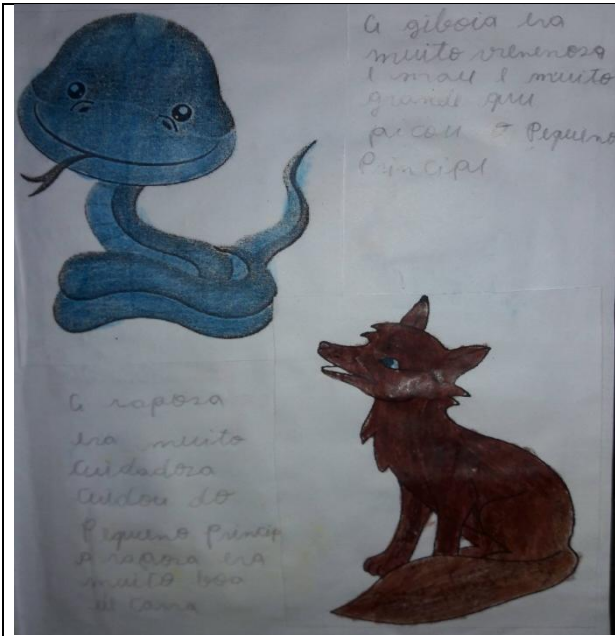 A giboia era
muito venenosa
e mau e muito
grande que
picou o Pequeno
Principe
A raposa
era muito
cuidadoza
cuidou do
Pequeno Princip
A raposa era
muito boa